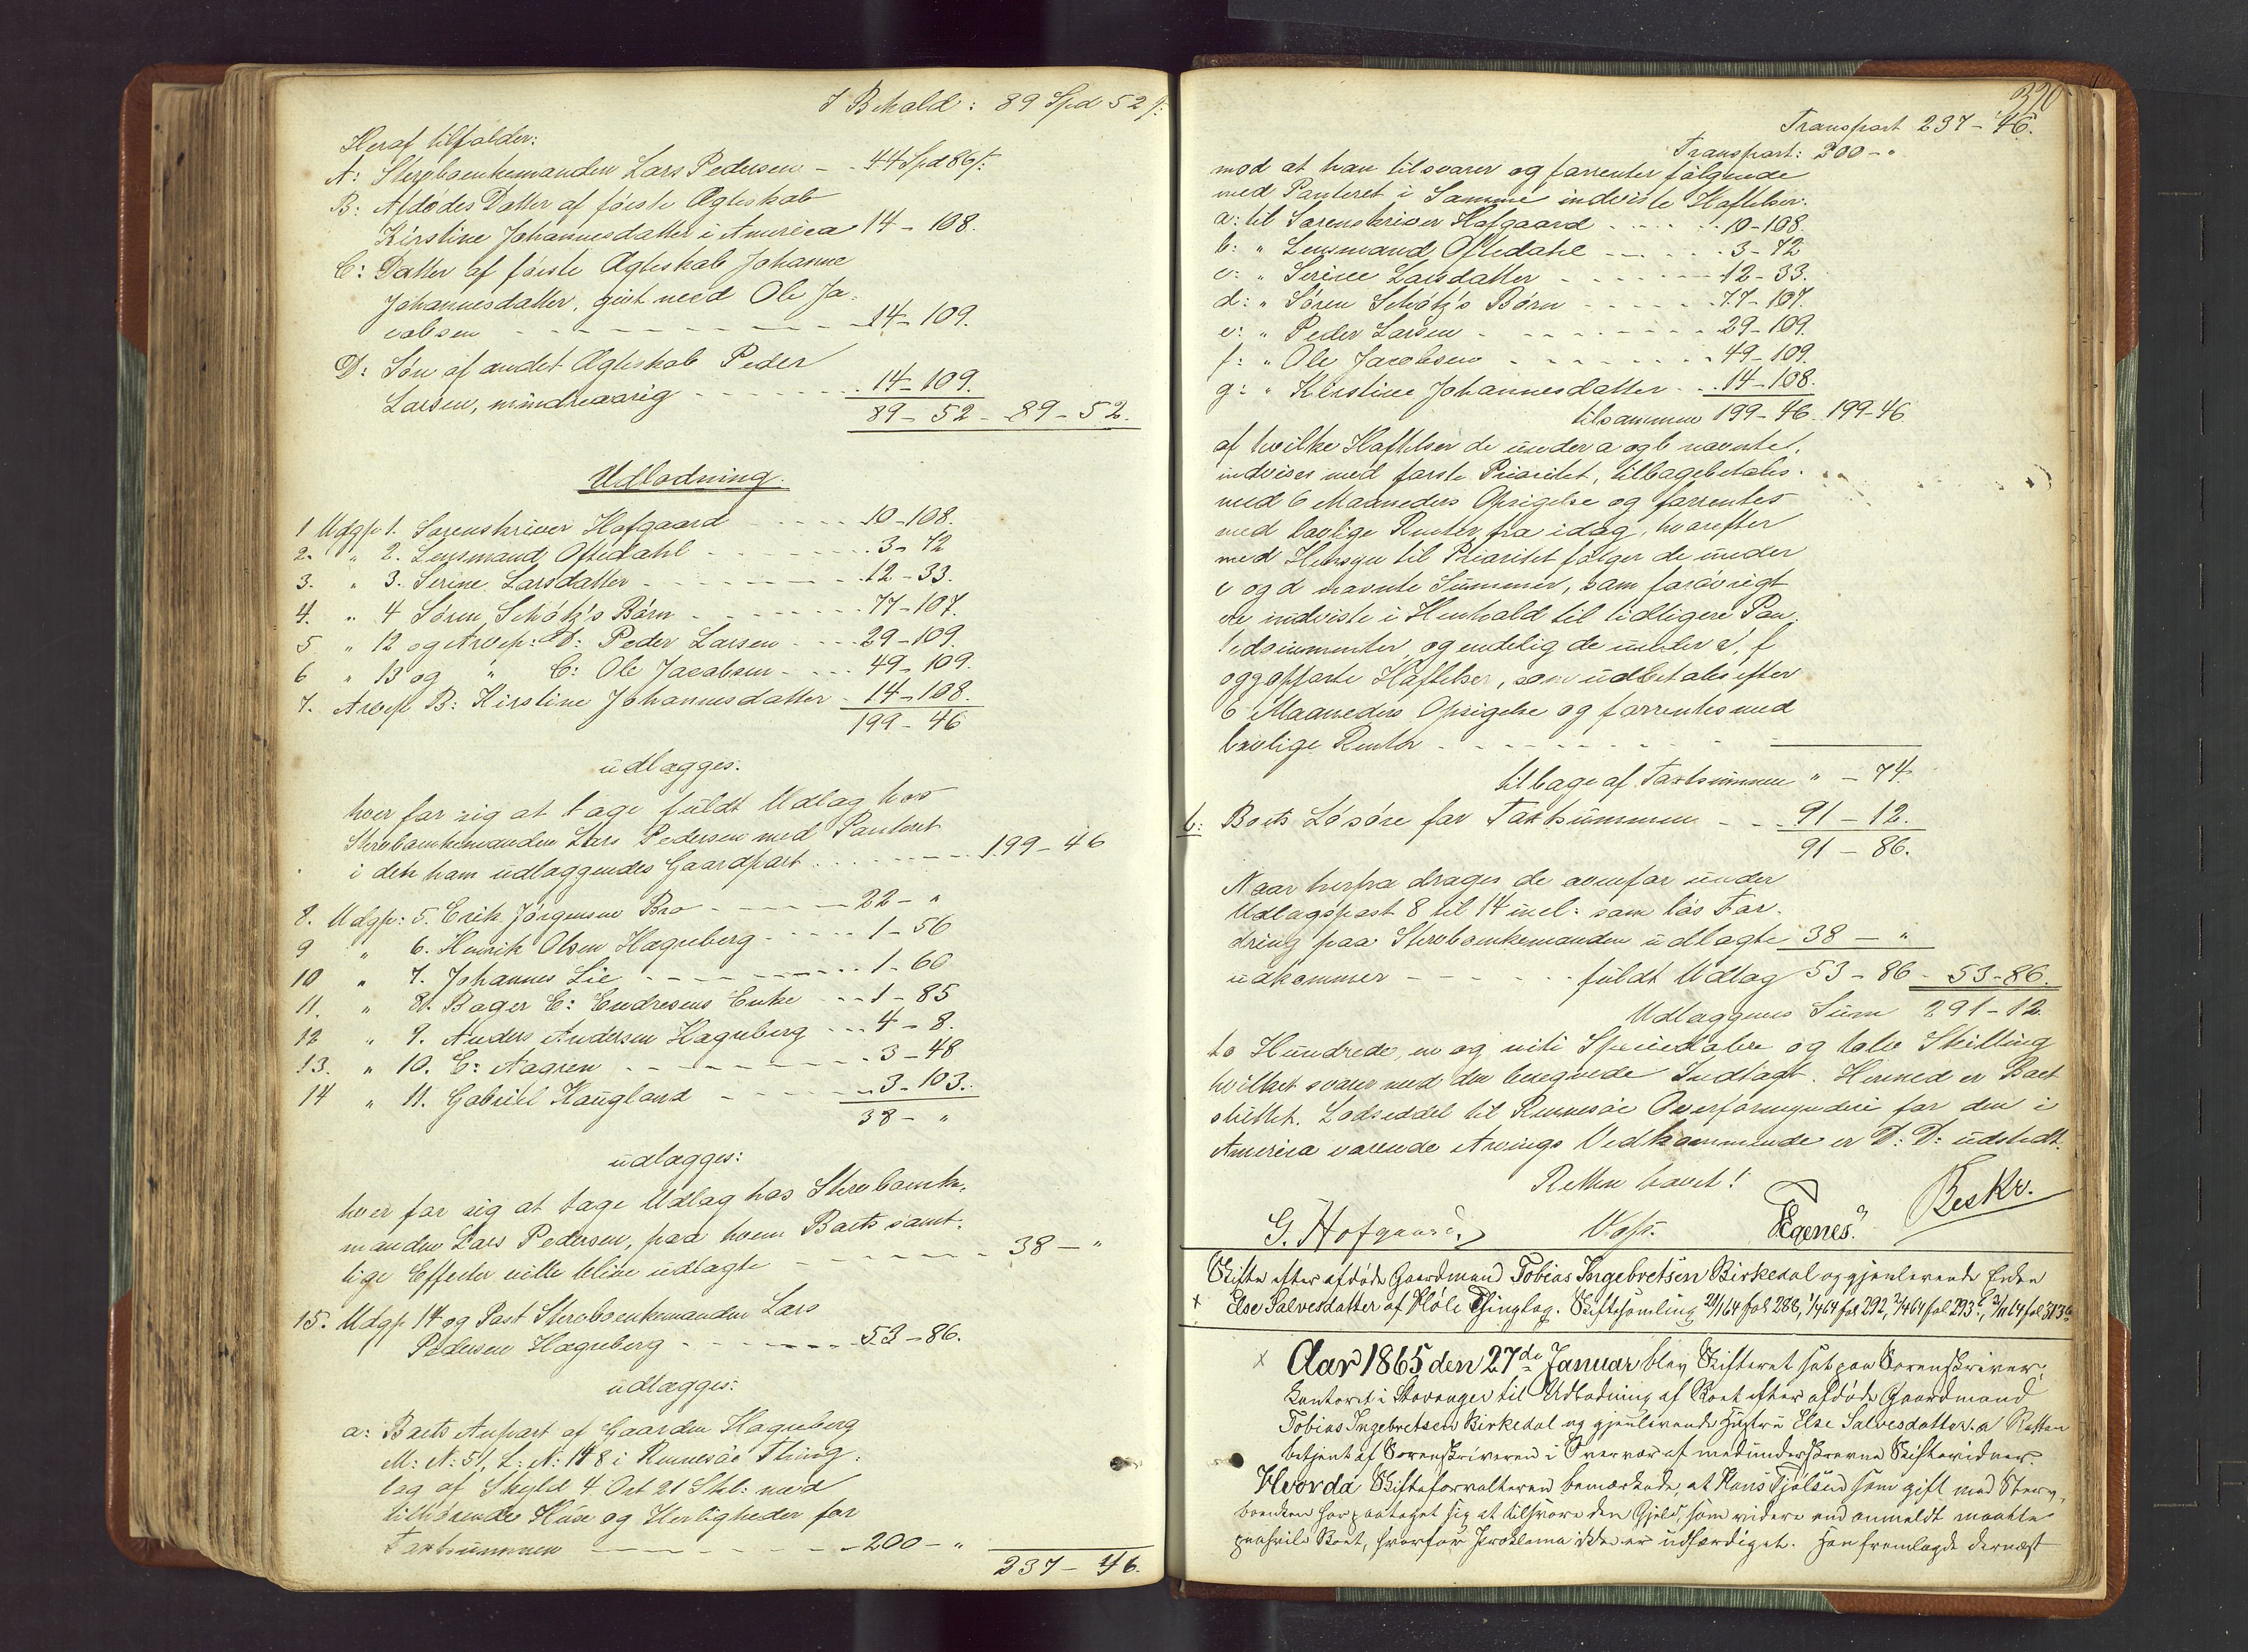 I Behold: 89 Spd 52 s:
Heraf tilfalder:
A: Sterboenkemanden Lars Pedersen - - 44 Spd 86 s:
B: Afdødes Datter af første Ægteskab
Kirstine Johannesdatter i America 14 - 108.
C: Datter af første Ægteskab Johanne
Johannesdatter, givt med Ole Ja-
cobsen - - - - - - - - - 14 - 109.
D: Søn af andet Ægteskab Peder
Larsen, mindreaarig - - - - - 14 - 109.
89 - 52 - 89 - 52.
Udlodning.
1 Udgp 1. Sorenskriver Hofgaard - - - - 10 - 108.
2. " 2. Lensmand Oftedahl - - - - - 3 - 72
3. " 3. Serine Larsdatter - - - - - 12 - 33.
4. " 4 Søren Schøtz's Børn - - - - - 77 - 107.
5 " 12 og Arvep: D: Peder Larsen - - - 29 - 109.
6 " 13 og " C: Ole Jacobsen - - - 49 - 109.
7. Arvep B: Kirstine Johannesdatter - 14 - 108.
199 - 46
udlægges:
hver for sig at tage fuldt Udlag hos
Sterboenkemanden Lars Pedersen med Panteret
i den ham udlæggendes Gaardpart - - - - - 199 - 46
8. Udgp: 5. Erik Jørgensen Bro - - - - 22 - "
9 " 6. Henrik Olsen Hagneberg - - - - 1 - 56
10 " 7. Johannes Lie - - - - - - 1 - 60
11. " 8. Bager E: Endresens Enke - - 1 - 85
12 " 9. Anders Andersen Hagneberg - - - 4 - 8.
13. " 10. E: Aagren - - - - - - 3 - 48
14 " 11. Gabriel Haugland - - - - - 3 - 103.
38 - "
udlægges:
hver for sig at tage Udlag hos Sterboenke-
manden Lars Pedersen, paa hvem Boets samt-
lige Effecter ville blive udlagte - - - - - 38 - "
15. Udgp 14 og Post Sterboenkemanden Lars
Pedersen Hagneberg - - - - - - 53 - 86.
udlægges:
a: Boets Anpart af Gaarden Hagneberg
M: N: 51, L: N: 148 i Rennesøe Thing-
lag af Skyld 4 Ort 21 Skl: med
tilhørende Huse og Herligheder for
Taxtsummen - - - - - - 200 - "
237 - 46.
320
Transport 237 - 46.
Transport: 200 - "
mod at han tilsvarer og forrenter følgende
med Panteret i Samme indviste Hæftelser:
a: til Sorenskriver Hofgaard - - - - 10 - 108.
b: " Lensmand Oftedahl - - - - 3 - 72
c: " Serine Larsdatter - - - - 12 - 33.
d: " Søren Schøtz's Børn - - - - 77 - 107.
e: " Peder Larsen - - - - - - 29 - 109.
f: " Ole Jacobsen - - - - - - 49 - 109.
g: " Kirstine Johannesdatter - - 14 - 108.
tilsammen 199 - 46. 199 - 46.
af hvilke Hæftelser de under a og b nævnte,
indvises med første Prioritet, tilbagebetales
med 6 Maaneders Opsigelse og forrentes
med lovlige Renter fra idag, hvorefter
med Hensyn til Prioritet følger de under
c og d nævnte Summer, som forøvrigt
ere indviste i Henhold til tidligere Pan-
tedocumenter, og endelig de under e, f
og g opførte Hæftelser, som udbetales efter
6 Maaneders Opsigelse og forrentes med
lovlige Renter - - - - - - -
tilbage af Taxtsummen " - 74.
b: Boets Løsøre for Taxtsummen - - - 91 - 12.
91 - 86.
Naar herfra drages de ovenfor under
Udlagspost 8 til 14 incl: som løs For-
dring paa Sterboenkemanden udlagte 38 - "
udkommer - - - - - fuldt Udlag 53 - 86 - 53 - 86.
Udlæggenes Sum 291 - 12
to Hundrede, en og niti Speciedaler og tolv Skilling
hvilket svarer med den beregnede Indtægt. Hermed er Boet
sluttet. Lodseddel til Rennesøe Overformynderi for den i
America værende Arvings Vedkommende er D: D: udstedt.
Retten hævet!
G. Hofgaard. Voss. Egenes. Beskr.
Skifte efter afdøde Gaardmand Tobias Ingebretsen Birkedal og gjenlevende Enke
x Else Salvesdatter af Høle Thinglag. Skiftesamling 21/1 64 fol 288, 1/4 64 fol 292, 2/4 64 fol 293 b, 2/11 64 fol 313 b
x Aar 1865 den 27de Januar blev Skifteret sat paa Sorenskriver-
kontoret i Stavanger til Udlodning af Boet efter afdøde Gaardmand
Tobias Ingebretsen Birkedal og gjenlevende Hustru Else Salvesdatter. Retten
betjent af Sorenskriveren i Overvær af medunderskrevne Skiftevidner.
Hvorda Skifteforvalteren bemærkede, at Hans Tjølsen som gift med Sterv-
boenken har paataget sig at tilsvare den Gjeld, som videre end anmeldt maatte
paahvile Boet, hvorfor Proklama ikke er udfærdiget. Han fremlagde dernæst